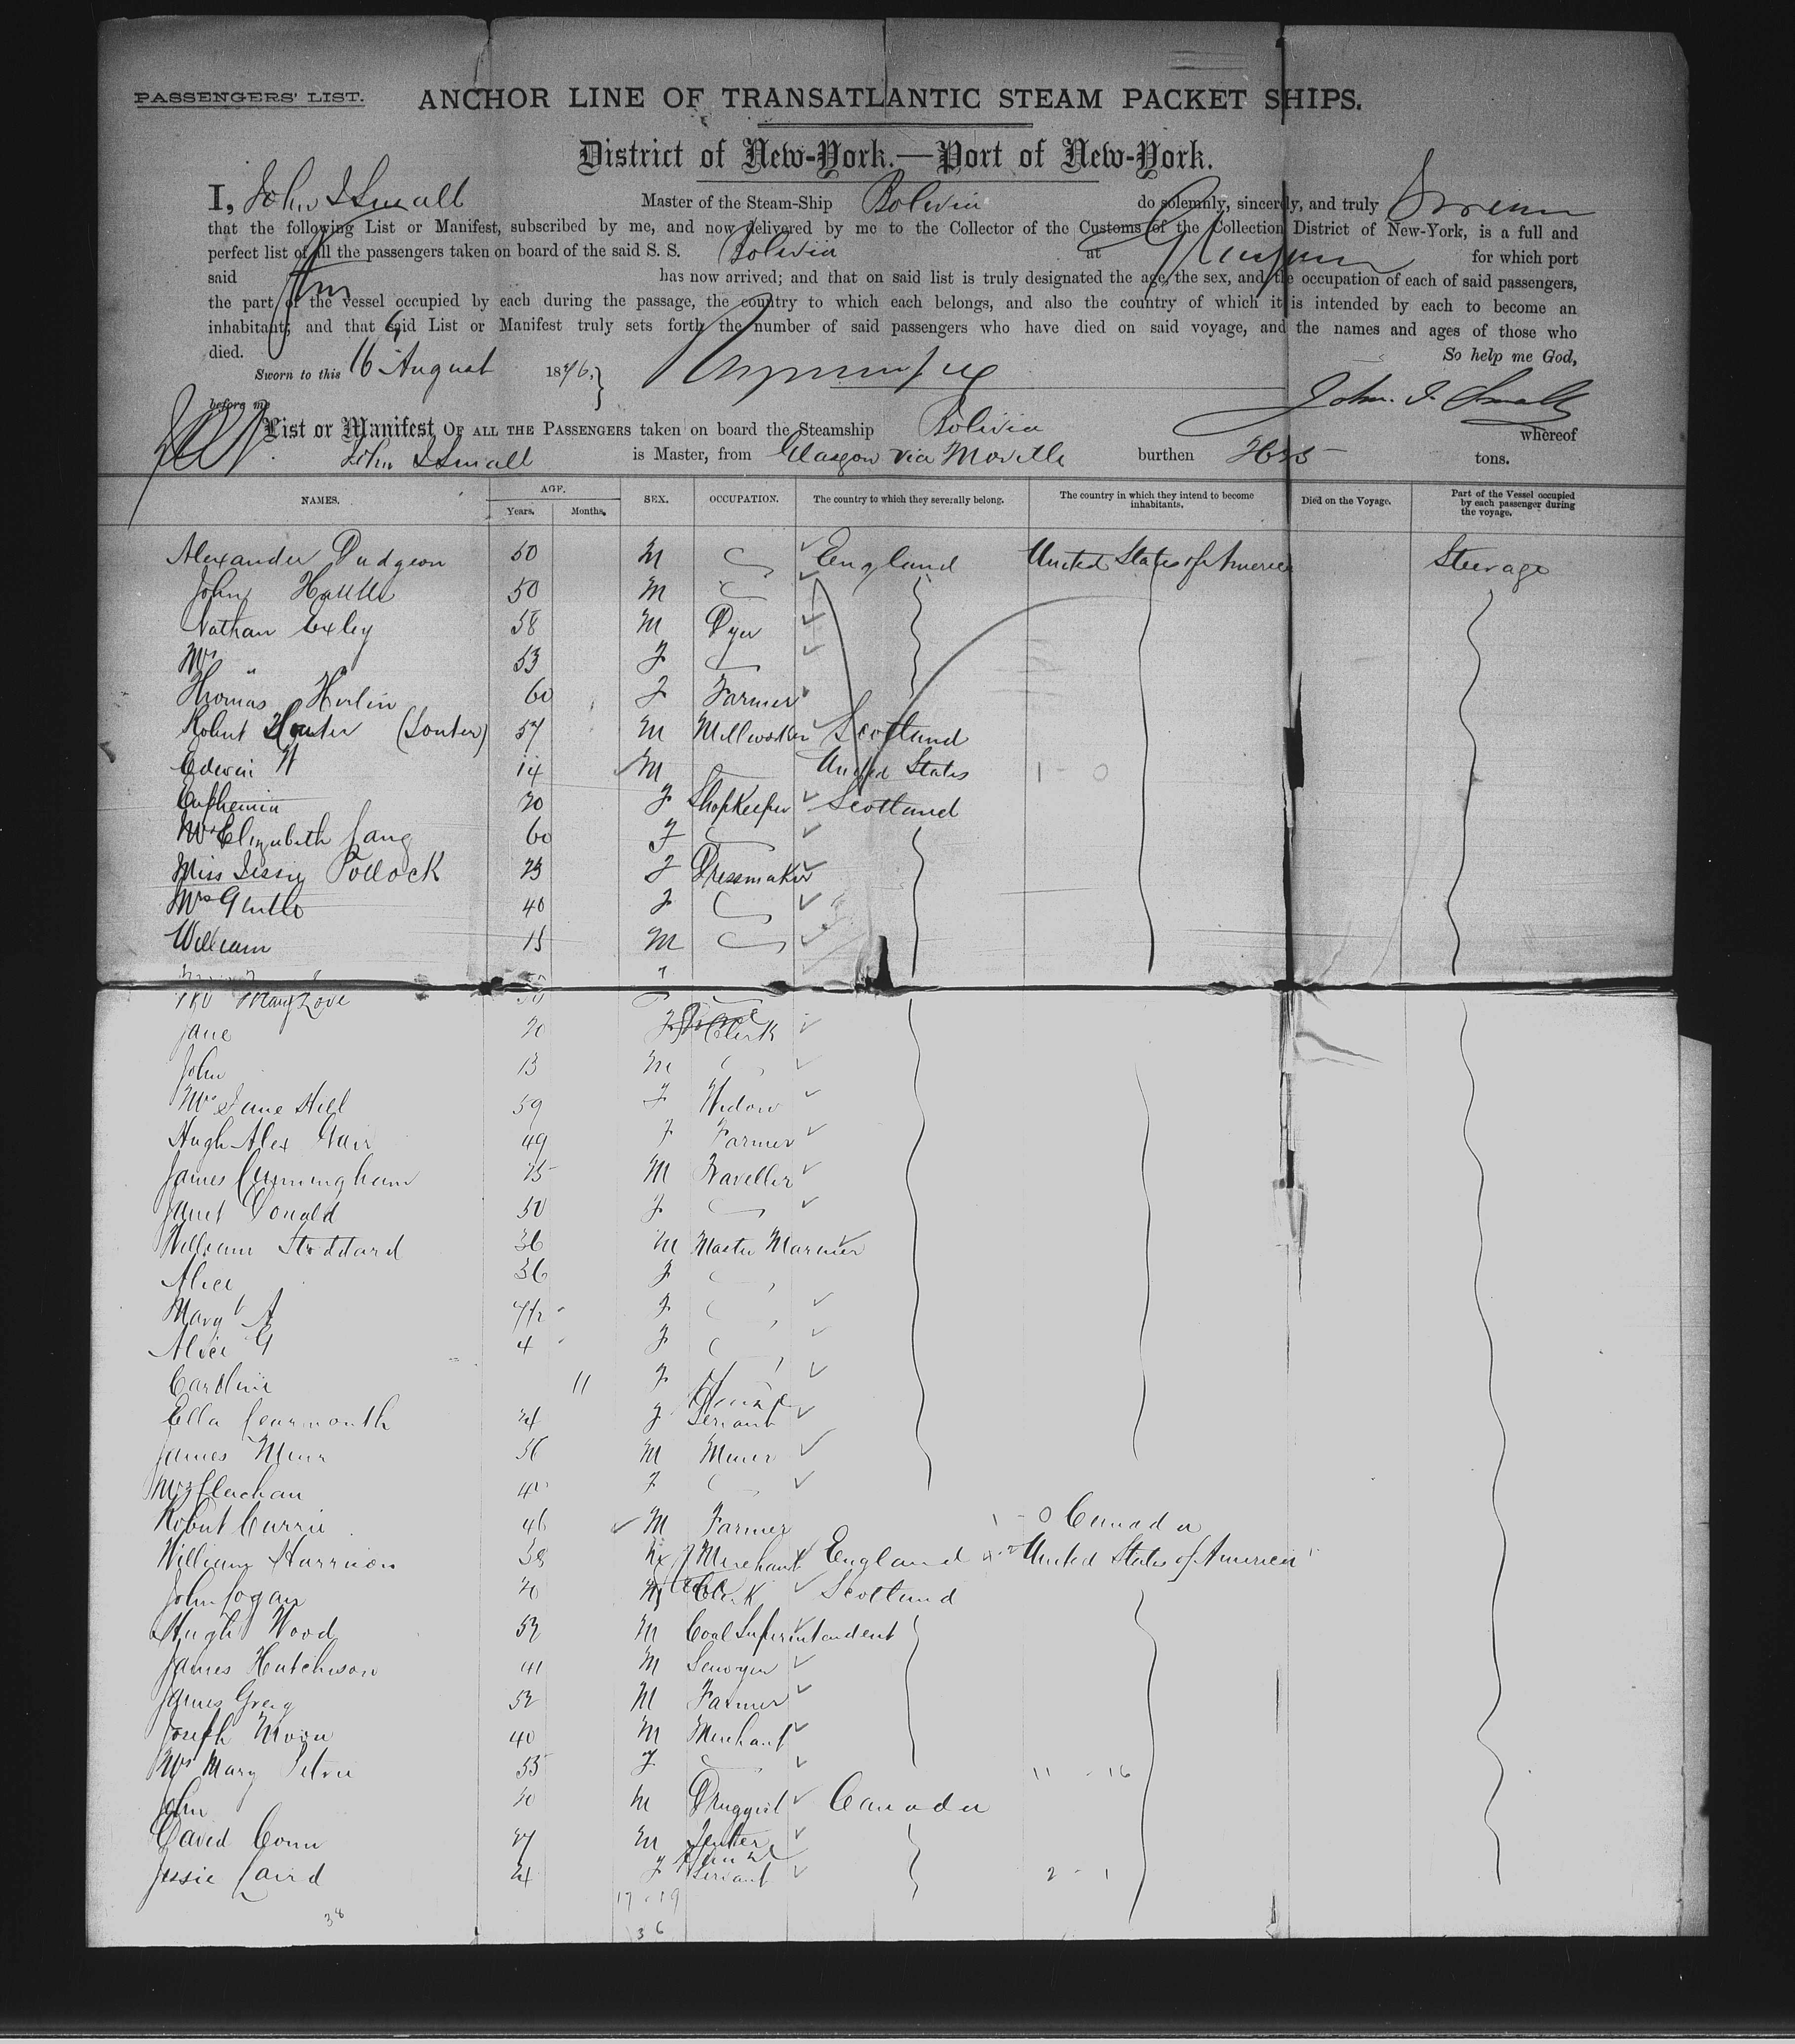 PASSENGERS' LIST.
ANCHOR LINE OF TRANSATLANTIC STEAM PACKET SHIPS.
District of New-York.—Port of New-York.
I, John I Small Master of the Steam-Ship Bolivia do solemnly, sincerely, and truly Swear
that the following List or Manifest, subscribed by me, and now delivered by me to the Collector of the Customs of the Collection District of New-York, is a full and
perfect list of all the passengers taken on board of the said S. S. Bolivia at Glasgow for which port
said has now arrived; and that on said list is truly designated the age, the sex, and the occupation of each of said passengers,
the part of the vessel occupied by each during the passage, the country to which each belongs, and also the country of which it is intended by each to become an
inhabitant; and that said List or Manifest truly sets forth the number of said passengers who have died on said voyage, and the names and ages of those who
died. So help me God,
Sworn to this 16 August 1876,
John. I. Small
before me
List or Manifest OF ALL THE PASSENGERS taken on board the Steamship Bolivia whereof
John I Small is Master, from Glasgow via Moville burthen tons.
NAMES. AGE. SEX. OCCUPATION. The country to which they severally belong. The country in which they intend to become inhabitants. Died on the Voyage. Part of the Vessel occupied by each passenger during the voyage.
Years. Months.
Alexander Dudgeon 50 M England United States of America Steerage
John 50 M
Nathan Exley 58 M Dyer
Mrs " 53 F
Thomas 60 F Farmer
Robert (Souter) 57 M Millworker Scotland
Edwin W 14 M United States 1 - 0
Euphemia 20 F Shopkeeper Scotland
Mrs Elizabeth Lang 60 F
Miss Jessie Pollock 23 F Dressmaker
Mrs 40 F
William 15 M
Mrs Mary Love 50
Jane 20 F Clerk
John 13 M
Mrs Jane Hill 59 F Widow
Hugh Alex Gair 49 F Farmer
James Cunningham 25 M Traveller
Janet Donald 50 F
William Stoddard 36 M Master Mariner
Alice 36 F
Mary A 7½ F
Alice G 4 F
Caroline 11 F
Ella Learmonth 24 F House Servant
James Muir 36 M Miner
Mrs Clachan 40 F
Robert Currie 46 M Farmer 1 - 0 Canada
William Harrison 38 M Merchant England United States of America
John Logan 20 M Clerk Scotland
Hugh Wood 52 M Coal Superintendent
James Hutchison 41 M Lawyer
James Greig 52 M Farmer
Joseph Moon 40 M Merchant
Mrs Mary Petrie 55 F 11 - 16
John 20 M Druggist Canada
David Conn 27 M
Jessie Laird 24 F House Servant 2 - 1
17 - 19
38
36